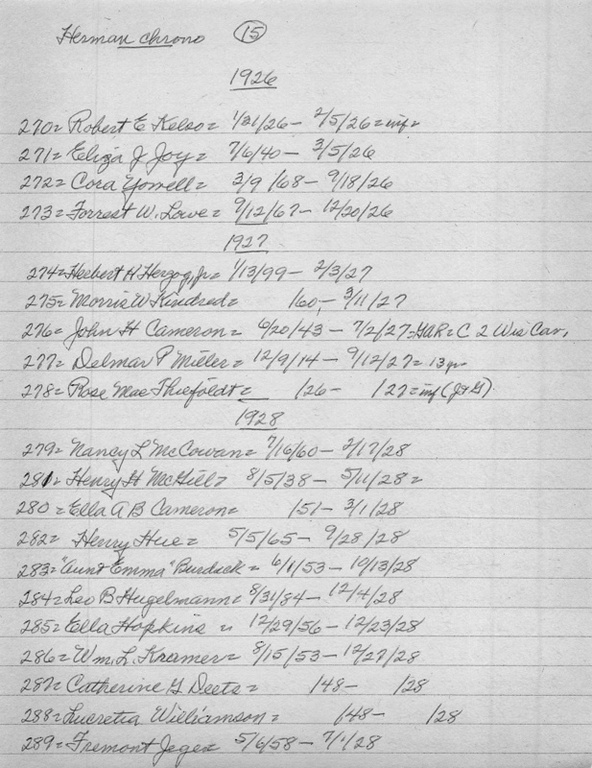 Herman chrono 15
1926
270= Robert E Kelso= 1/21/26 - 2/5/26 = inf=
271= Eliza J Joy= 7/6/40 - 3/5/26
272= Cora Yowell= 3/9/68 - 9/18/26
273= Forrest W. Lowe= 9/12/67 - 12/20/26
1927
274= Herbert H Herzog, Jr= 1/13/99 - 2/3/27
275= Morris W Kindred= /60 - 3/11/27
276= John H Cameron= 6/20/43 - 7/2/27=GAR=C 2 Wis Cav,
277= Delmar P Miller= 12/9/14 - 9/12/27= 13 yr
278= Rose Mae Thiefoldt= /26 - /27=inf (J+G)
1928
279= Nancy L McCowan= 7/16/60 - 2/17/28
281= Henry H McGill= 8/5/38 - 5/11/28=
280= Ella A B Cameron= /51 - 3/1/28
282= Henry Hue= 5/5/65 - 9/28/28
283="Aunt Emma" Burdick= 6/1/53 - 10/13/28
284= Leo B Hugelmann= 8/31/84 - 12/4/28
285= Ella Hopkins = 12/29/56 - 12/23/28
286= Wm. L. Kramer= 8/15/53 - 12/27/28
287= Catherine G Deets= /48 - /28
288= Lucretia Williamson= /48 - /28
289= Fremont Jege= 5/6/58 - 7/1/28